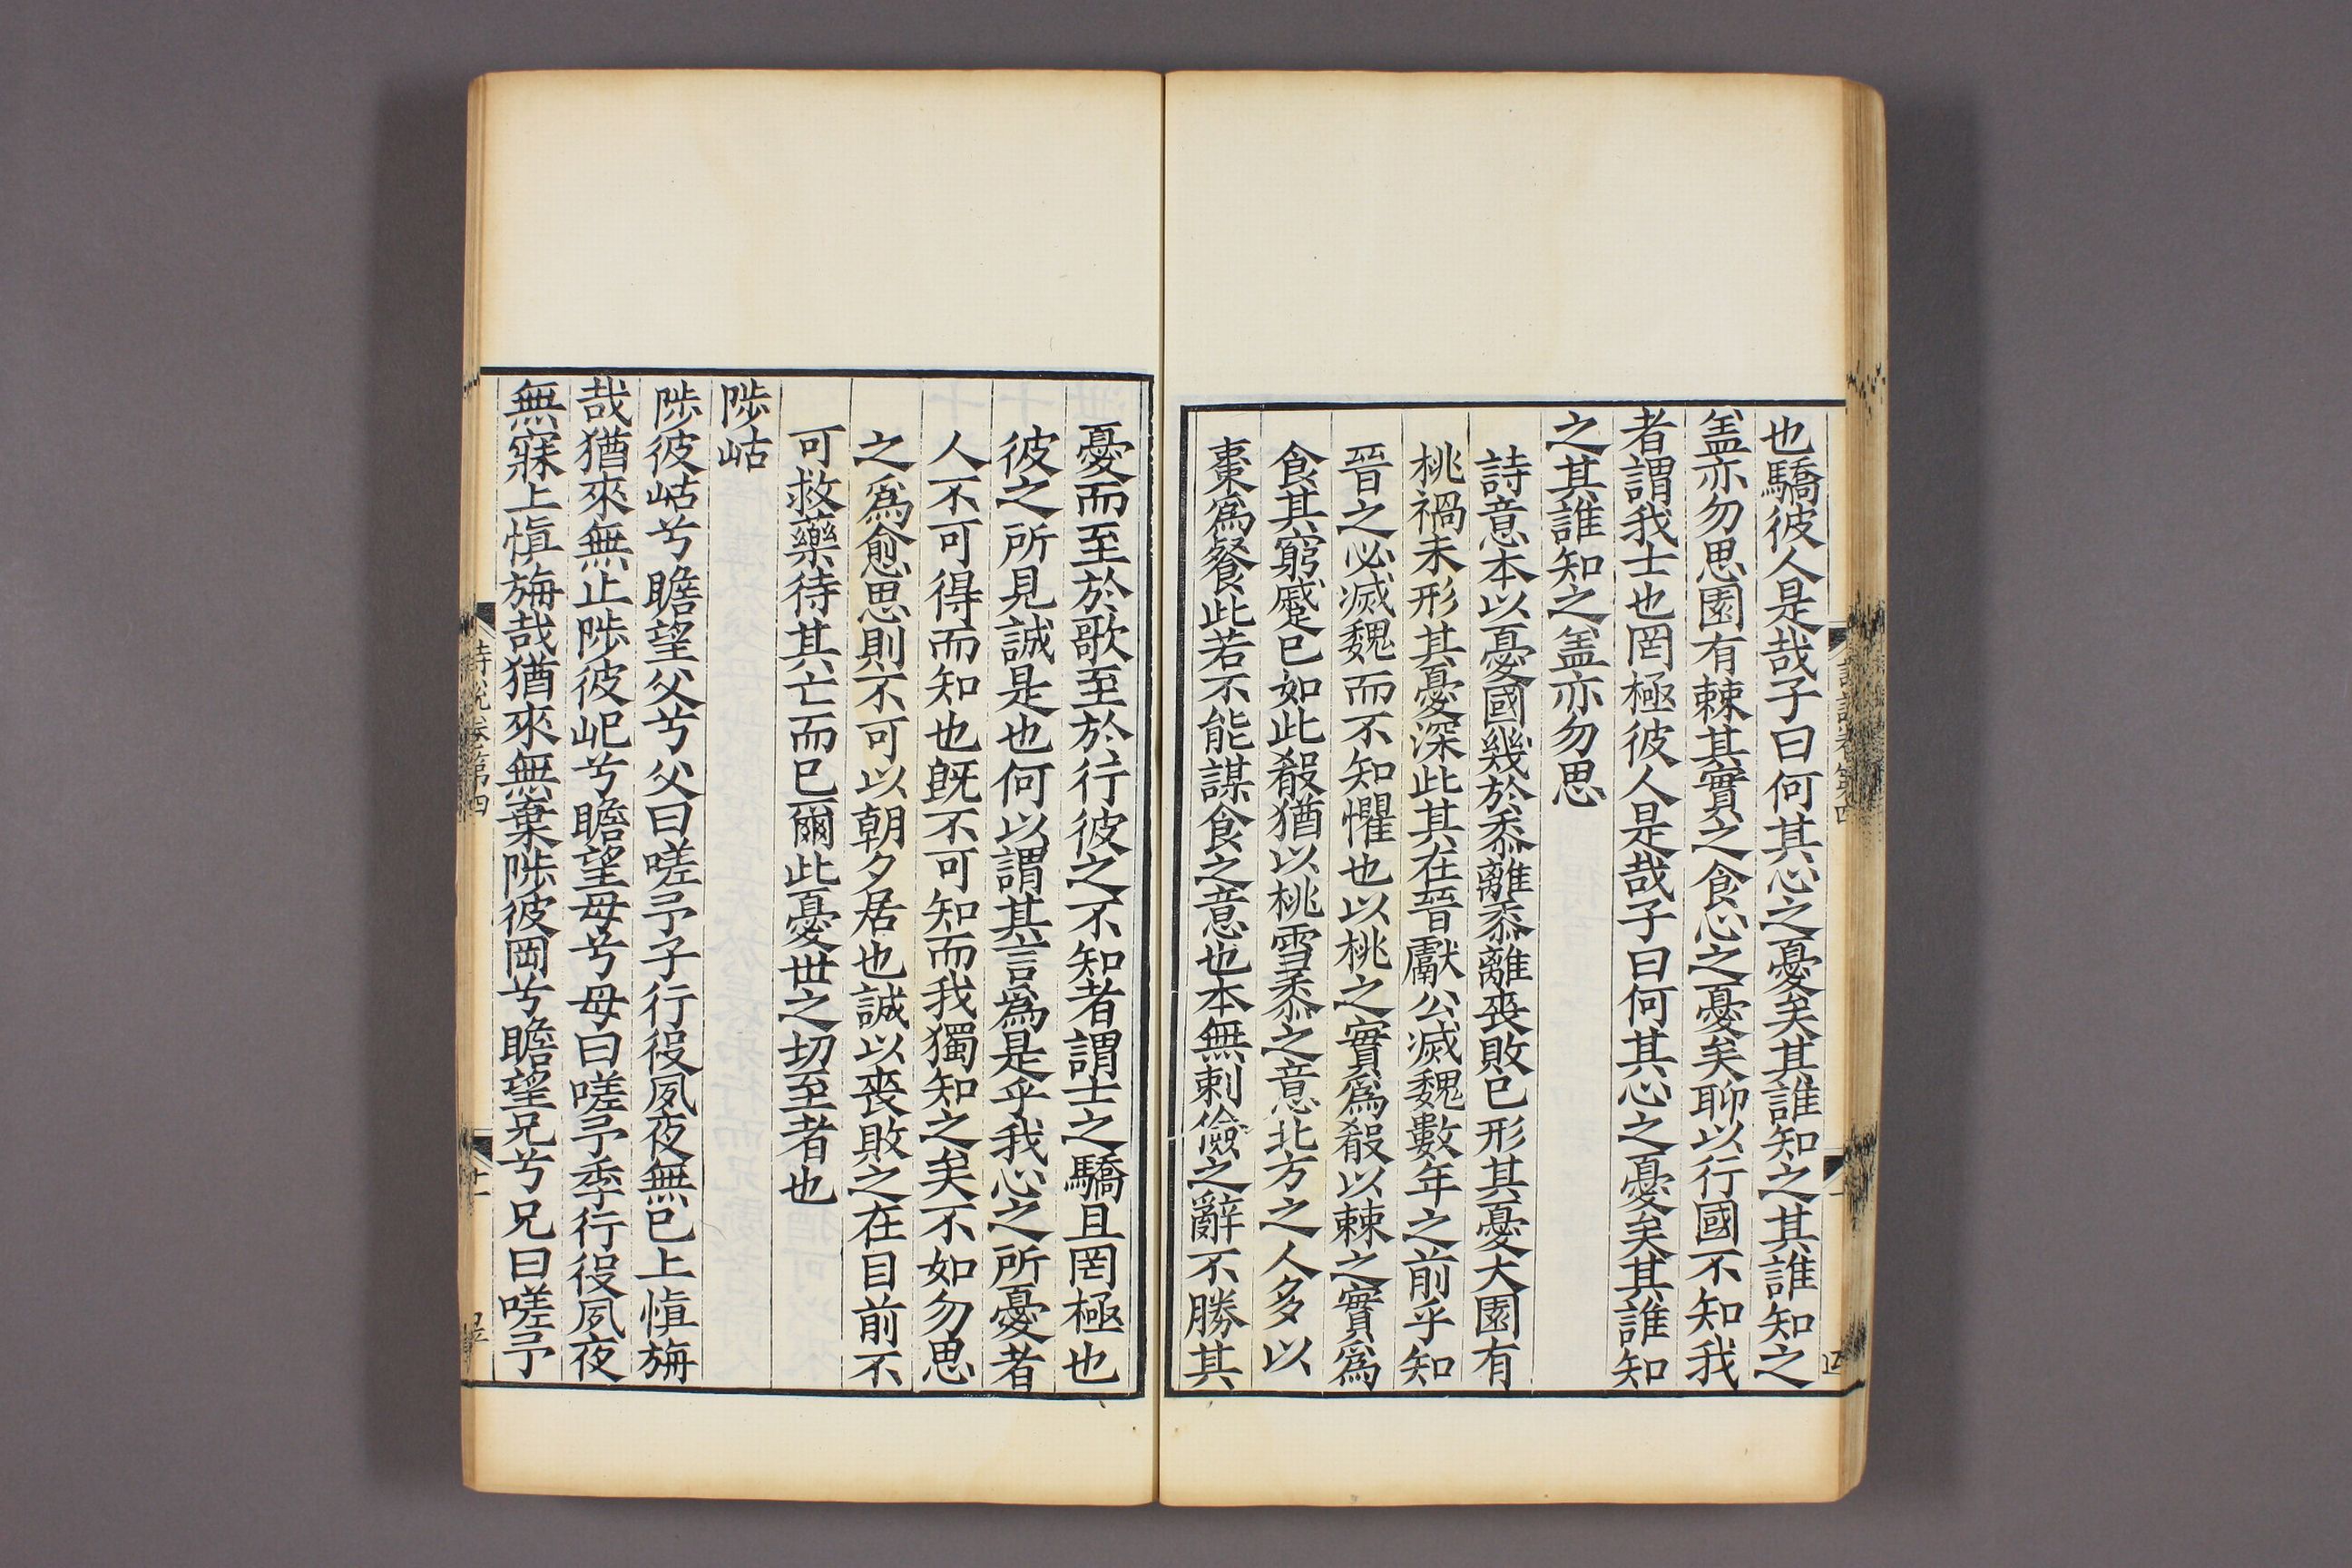 也驕彼人是哉子曰何其心之憂矣其誰知之其誰知之
盖亦勿思園有棘其實之食心之憂矣聊以行國不知我
者謂我士也罔極彼人是哉子曰何其心之憂矣其誰知
之其誰知之盖亦勿思
詩意本以憂國幾於黍離黍離喪敗已形其憂大園有
桃禍未形其憂深此其在晉獻公滅魏數年之前乎知
晉之必滅魏而不知懼也以桃之實爲殽以棘之實爲
食其窮蹙已如此殽猶以桃雪黍之意北方之人多以
棗爲餐此若不能謀食之意也本無刺儉之辭不勝其
憂而至於歌至於行彼之不知者謂士之驕且罔極也
彼之所見誠是也何以謂其言爲是乎我心之所憂者
人不可得而知也旣不可知而我獨知之矣不如勿思
之爲愈思則不可以朝夕居也誠以喪敗之在目前不
可救藥待其亡而已爾此憂世之切至者也
陟岵
陟彼岵兮瞻望父兮父曰嗟予子行役夙夜無已上愼旃
哉猶來無止陟彼屺兮瞻望母兮母曰嗟予季行役夙夜
無寐上愼旃哉猶來無棄陟彼岡兮瞻望兄兮兄曰嗟予
詩說卷第四